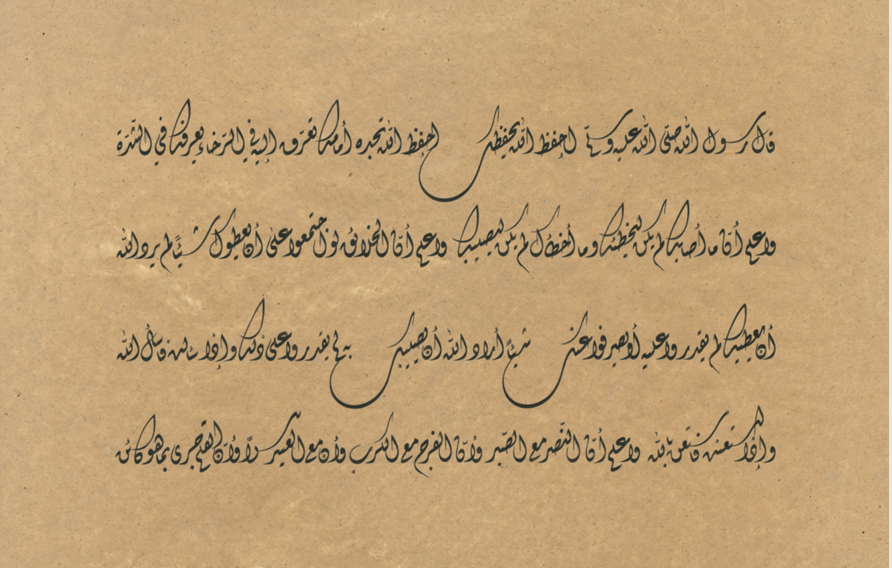 قال رسول الله صلى الله عليه وسلم احفظ الله يحفظك احفظ الله تجده أمامك تعرف إلى الله في الرخاء يعرفك في الشدة
واعلم أن ما أصابك لم يكن ليخطئك وما أخطأك لم يكن ليصيبك واعلم أن الخلائق لو اجتمعوا على أن يعطوك شيئا لم يرد الله
أن يعطيك لم يقدروا عليه أو يصرفوا عنك شيئا أراد الله أن يصيبك به لم يقدروا على ذلك وإذا سألت فاسأل الله
وإذا استعنت فاستعن بالله واعلم أن النصر مع الصبر وأن الفرج مع الكرب وأن مع العسر يسرا وأن القلم جرى بما هو كائن